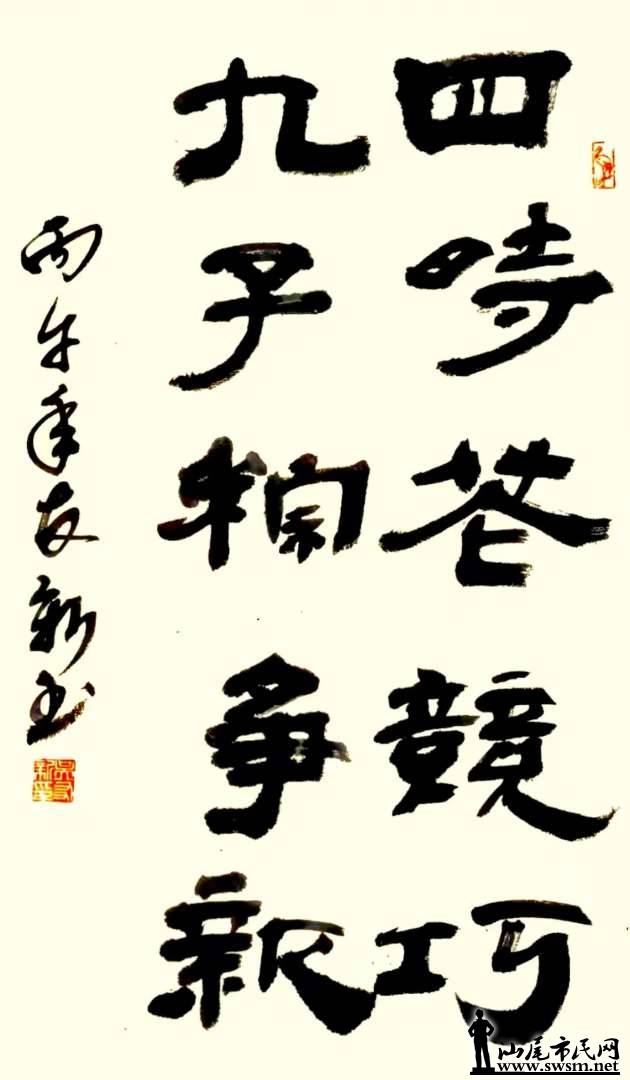 四時花競巧
九子粽爭新
丙午年友新书
汕尾市民网
www.swsm.net